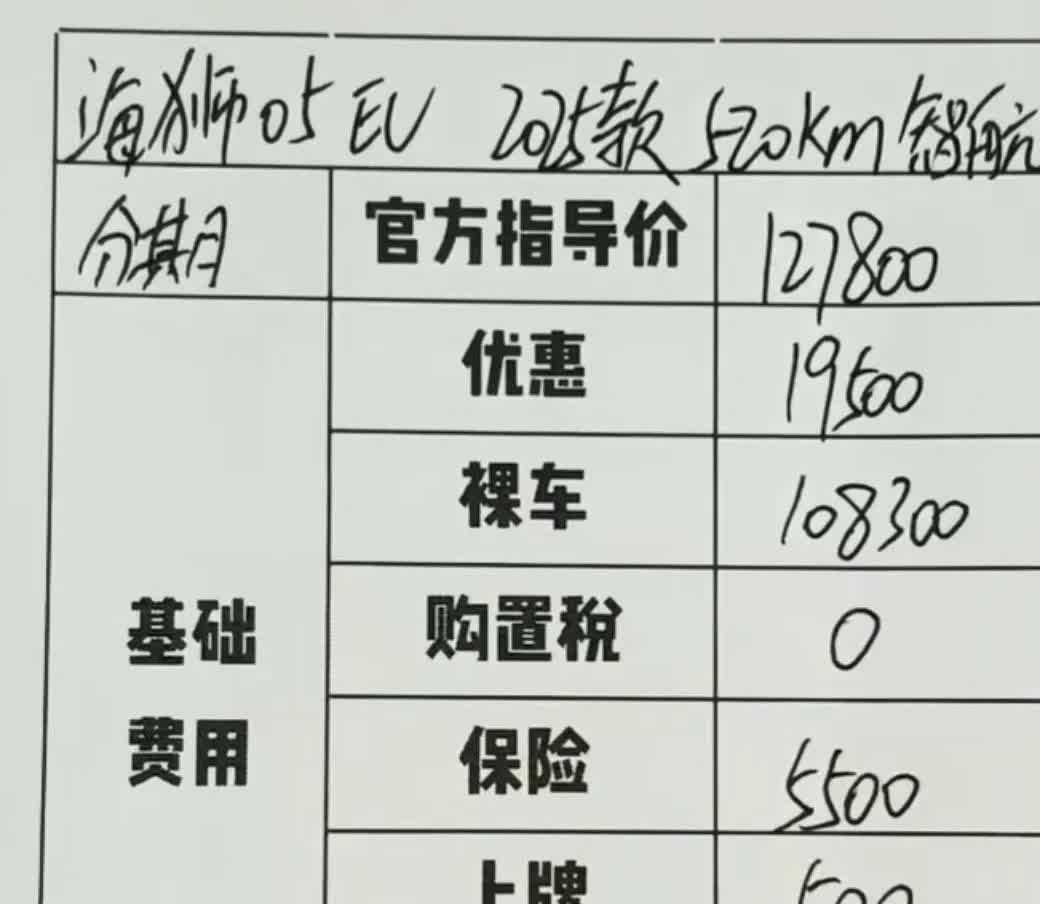 海狮05 EV 2025款 520km 智航
分期月 官方指导价 127800
优惠 19500
裸车 108300
购置税 0
基础
费用
保险 5500
上牌 500